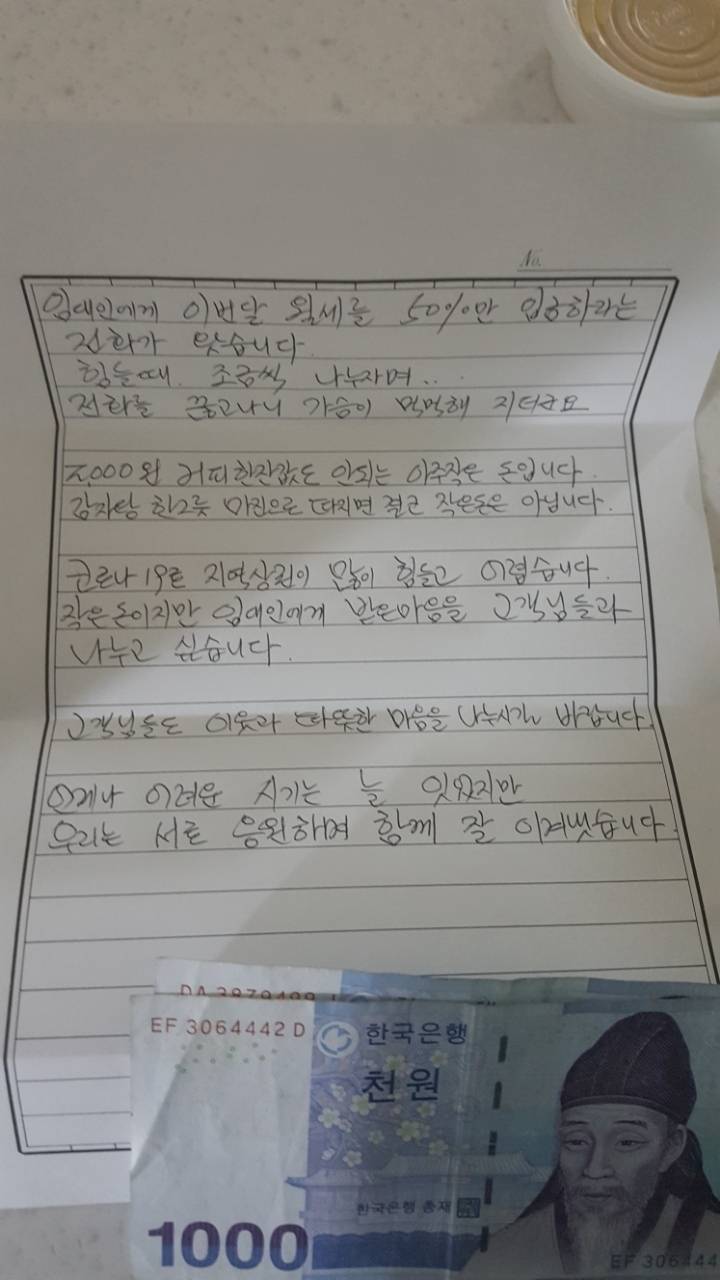 No.
임대인에게 이번달 월세를 50%만 입금하라는
전화가 왔습니다
힘들때. 조금씩 나누자며...
전화를 끊고나니 가슴이 먹먹해 지더군요
2,000원 커피한잔값도 안되는 아주작은 돈입니다.
감자탕 한그릇 마진으로 따지면 결코 작은돈은 아닙니다.
코로나19로 지역상권이 많이 힘들고 어렵습니다.
작은돈이지만 임대인에게 받은마음을 고객님들과
나누고 싶습니다.
고객님들도 이웃과 따뜻한 마음을 나누시길 바랍니다.
언제나 어려운 시기는 늘 잇었지만
우리는 서로 응원하며 함께 잘 이겨냇습니다.
EF 3064442 D
한국은행
천원
한국은행 총재
1000